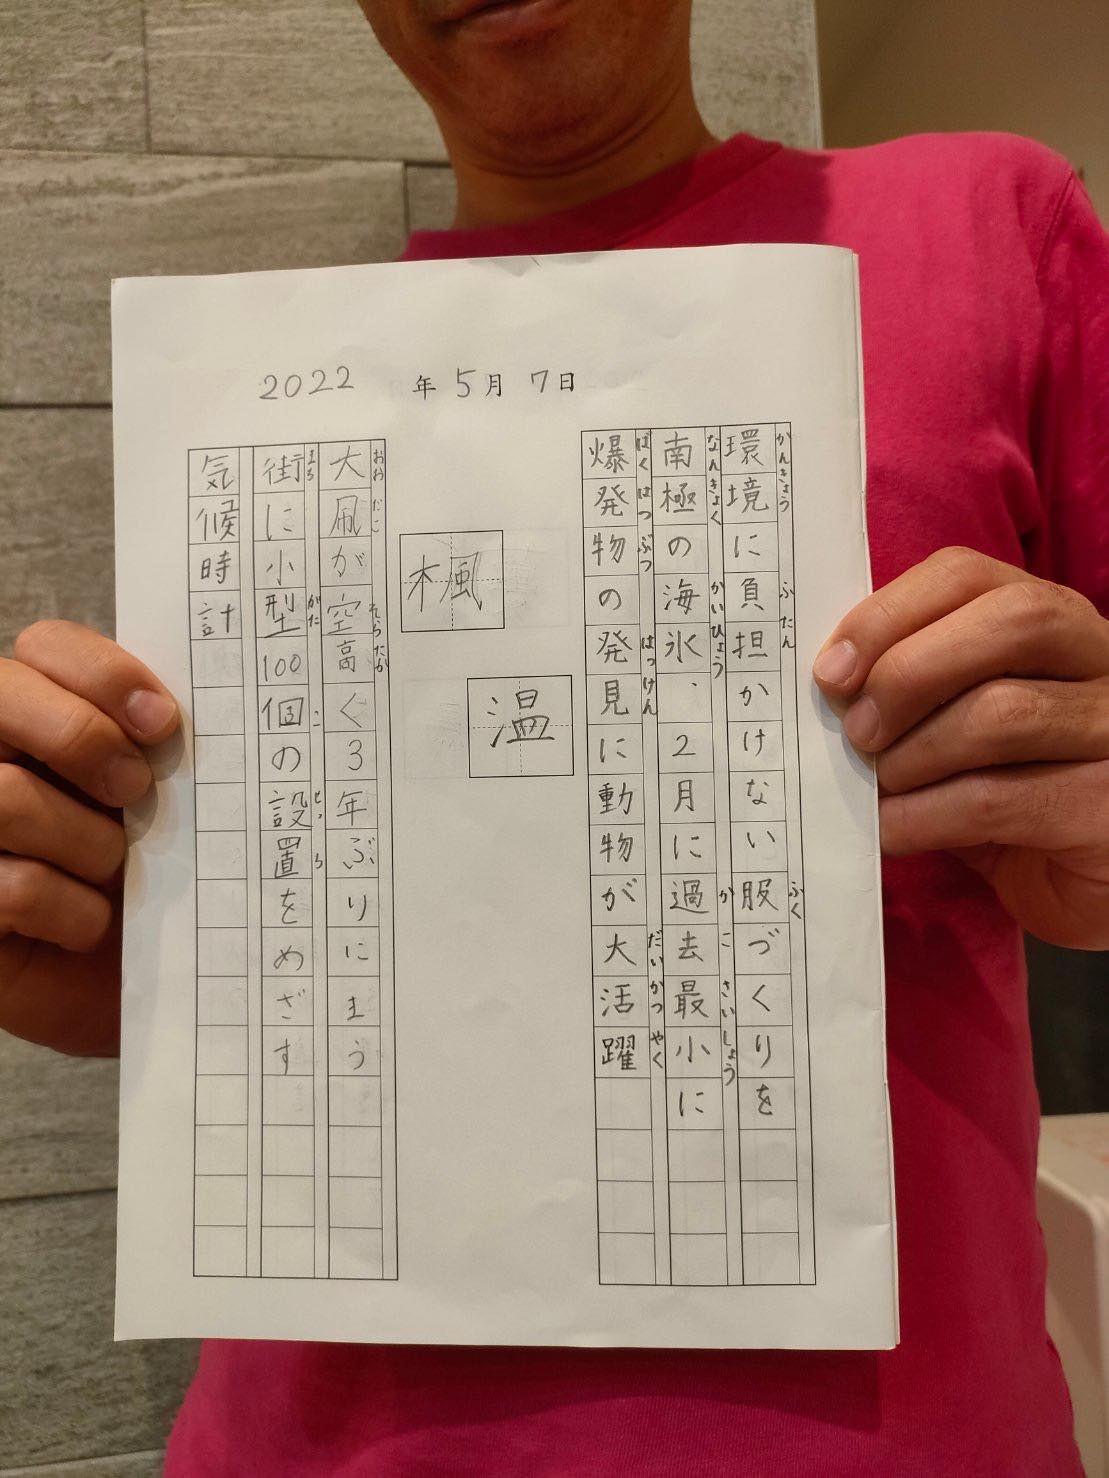 2022 年 5月 7日
かんきょう ふたん ふく
環境に負担かけない服づくりを
なんきょく かいひょう かこ さいしょう
南極の海氷、2月に過去最小に
ばくはつぶつ はっけん だいかつやく
爆発物の発見に動物が大活躍
温
楓
おおだこ そらたか
大凧が空高く3年ぶりにまう
まち がた こ せっち
街に小型100個の設置をめざす
気候時計